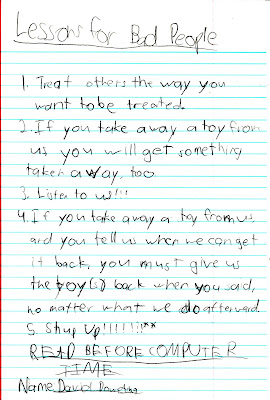 Lessons for Bad People
1. Treat others the way you
want to be treated.
2. If you take away a toy from
us you will get something
taken away, too.
3. Listen to us!!!
4. If you take away a toy from us,
and you tell us when we can get
it back, you must give us
the toy(s) back when you said,
no matter what we do afterward.
5. Shup Up!!!!!!**
READ BEFORE COMPUTER
TIME
Name. David